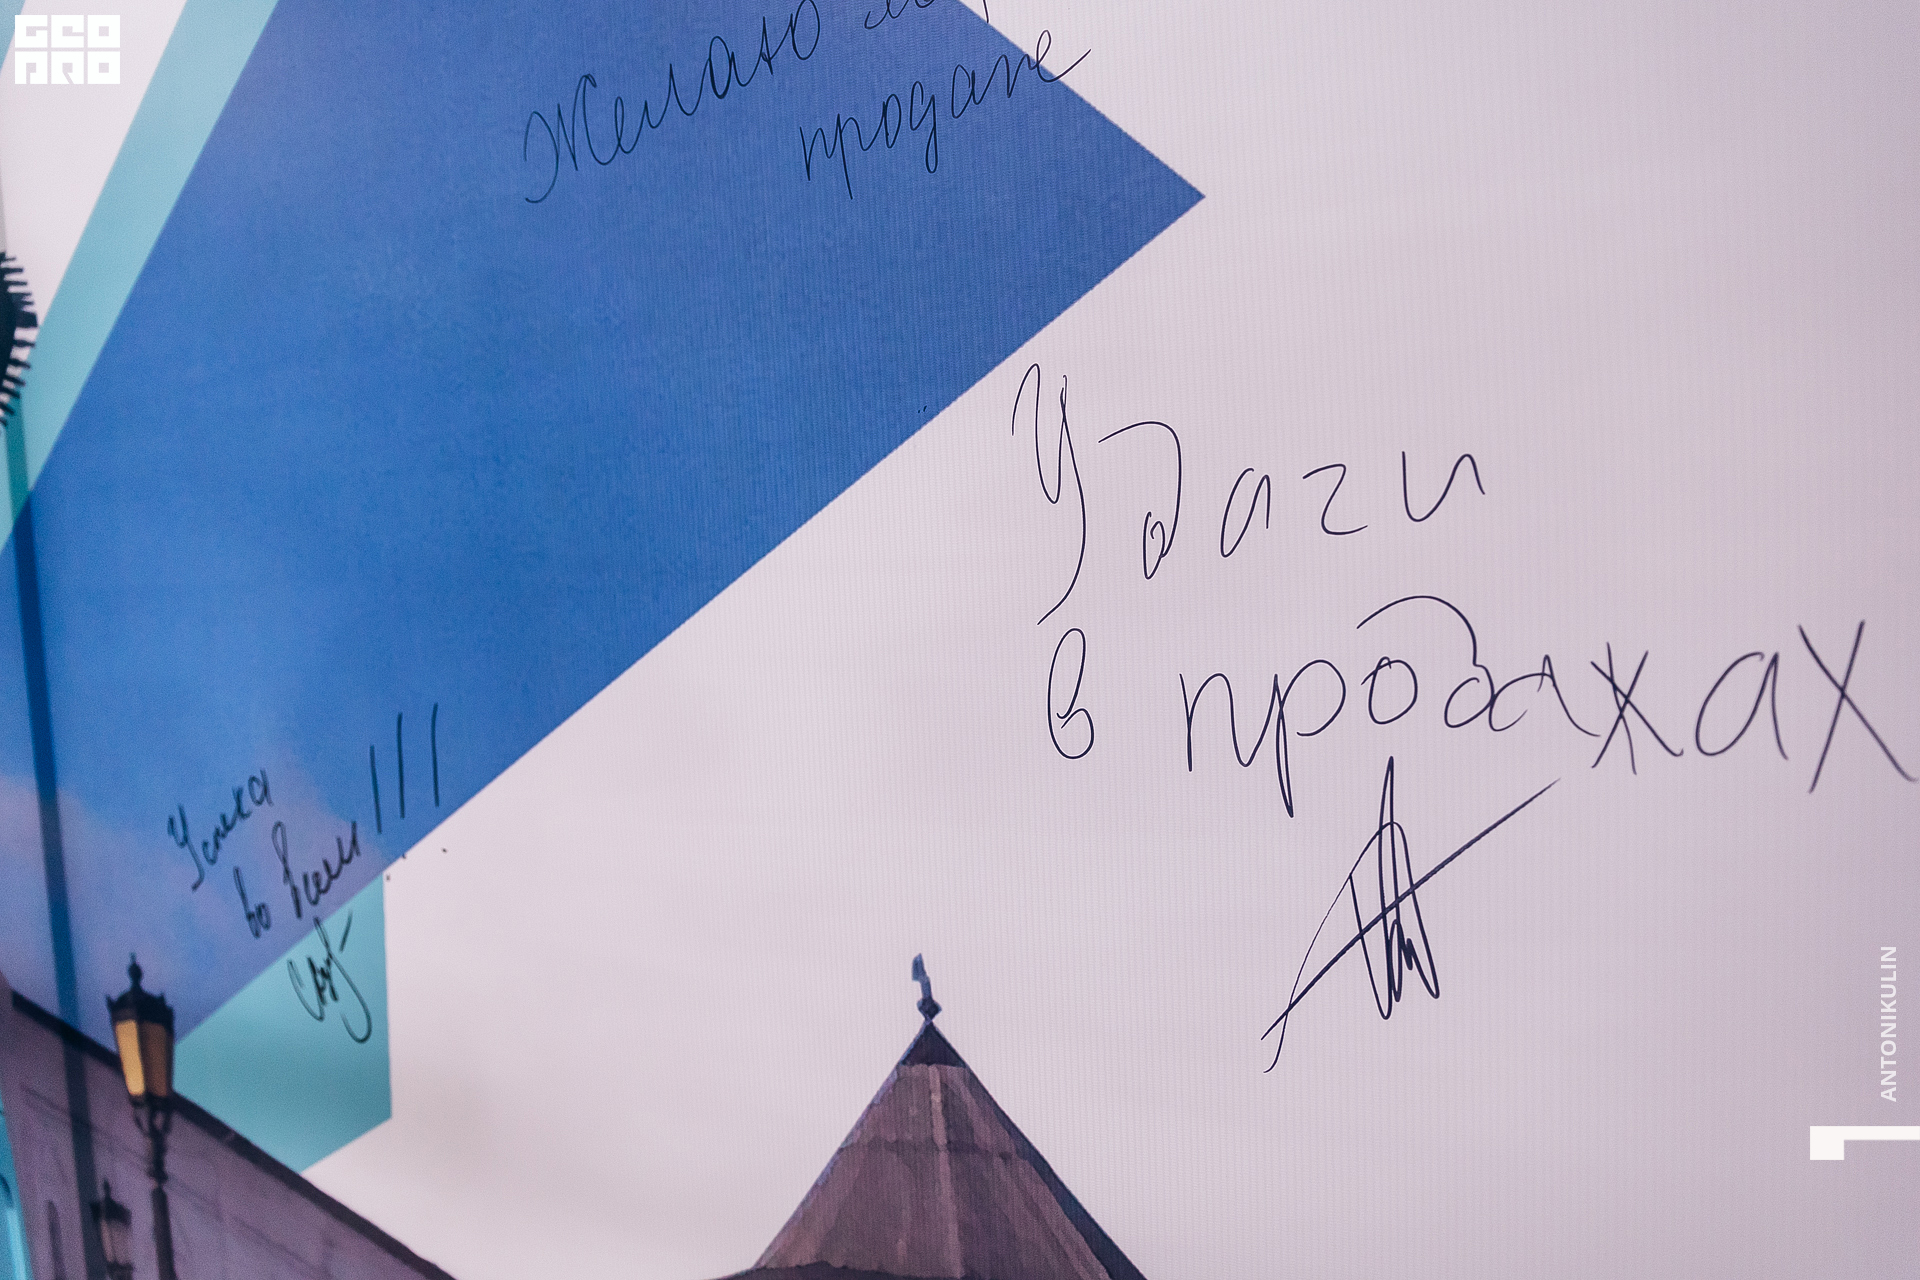 GEO
PRO
Желаю
продаже
Удачи
в продажах
Успеха
во всем!!!
ANTONIKULIN